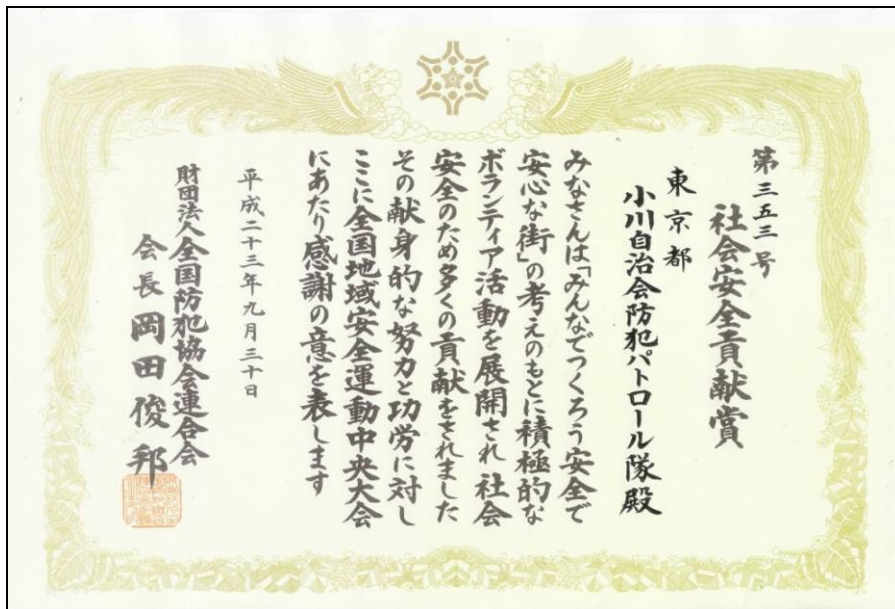 第三五三号
社会安全貢献賞
東京都
小川自治会防犯パトロール隊殿
みなさんは「みんなでつくろう安全で
安心な街」の考えのもとに積極的な
ボランティア活動を展開され社会
安全のため多くの貢献をされました
その献身的な努力と功労に対し
ここに全国地域安全運動中央大会
にあたり感謝の意を表します
平成二十三年九月三十日
財団法人全国防犯協会連合会
会長 岡田俊邦